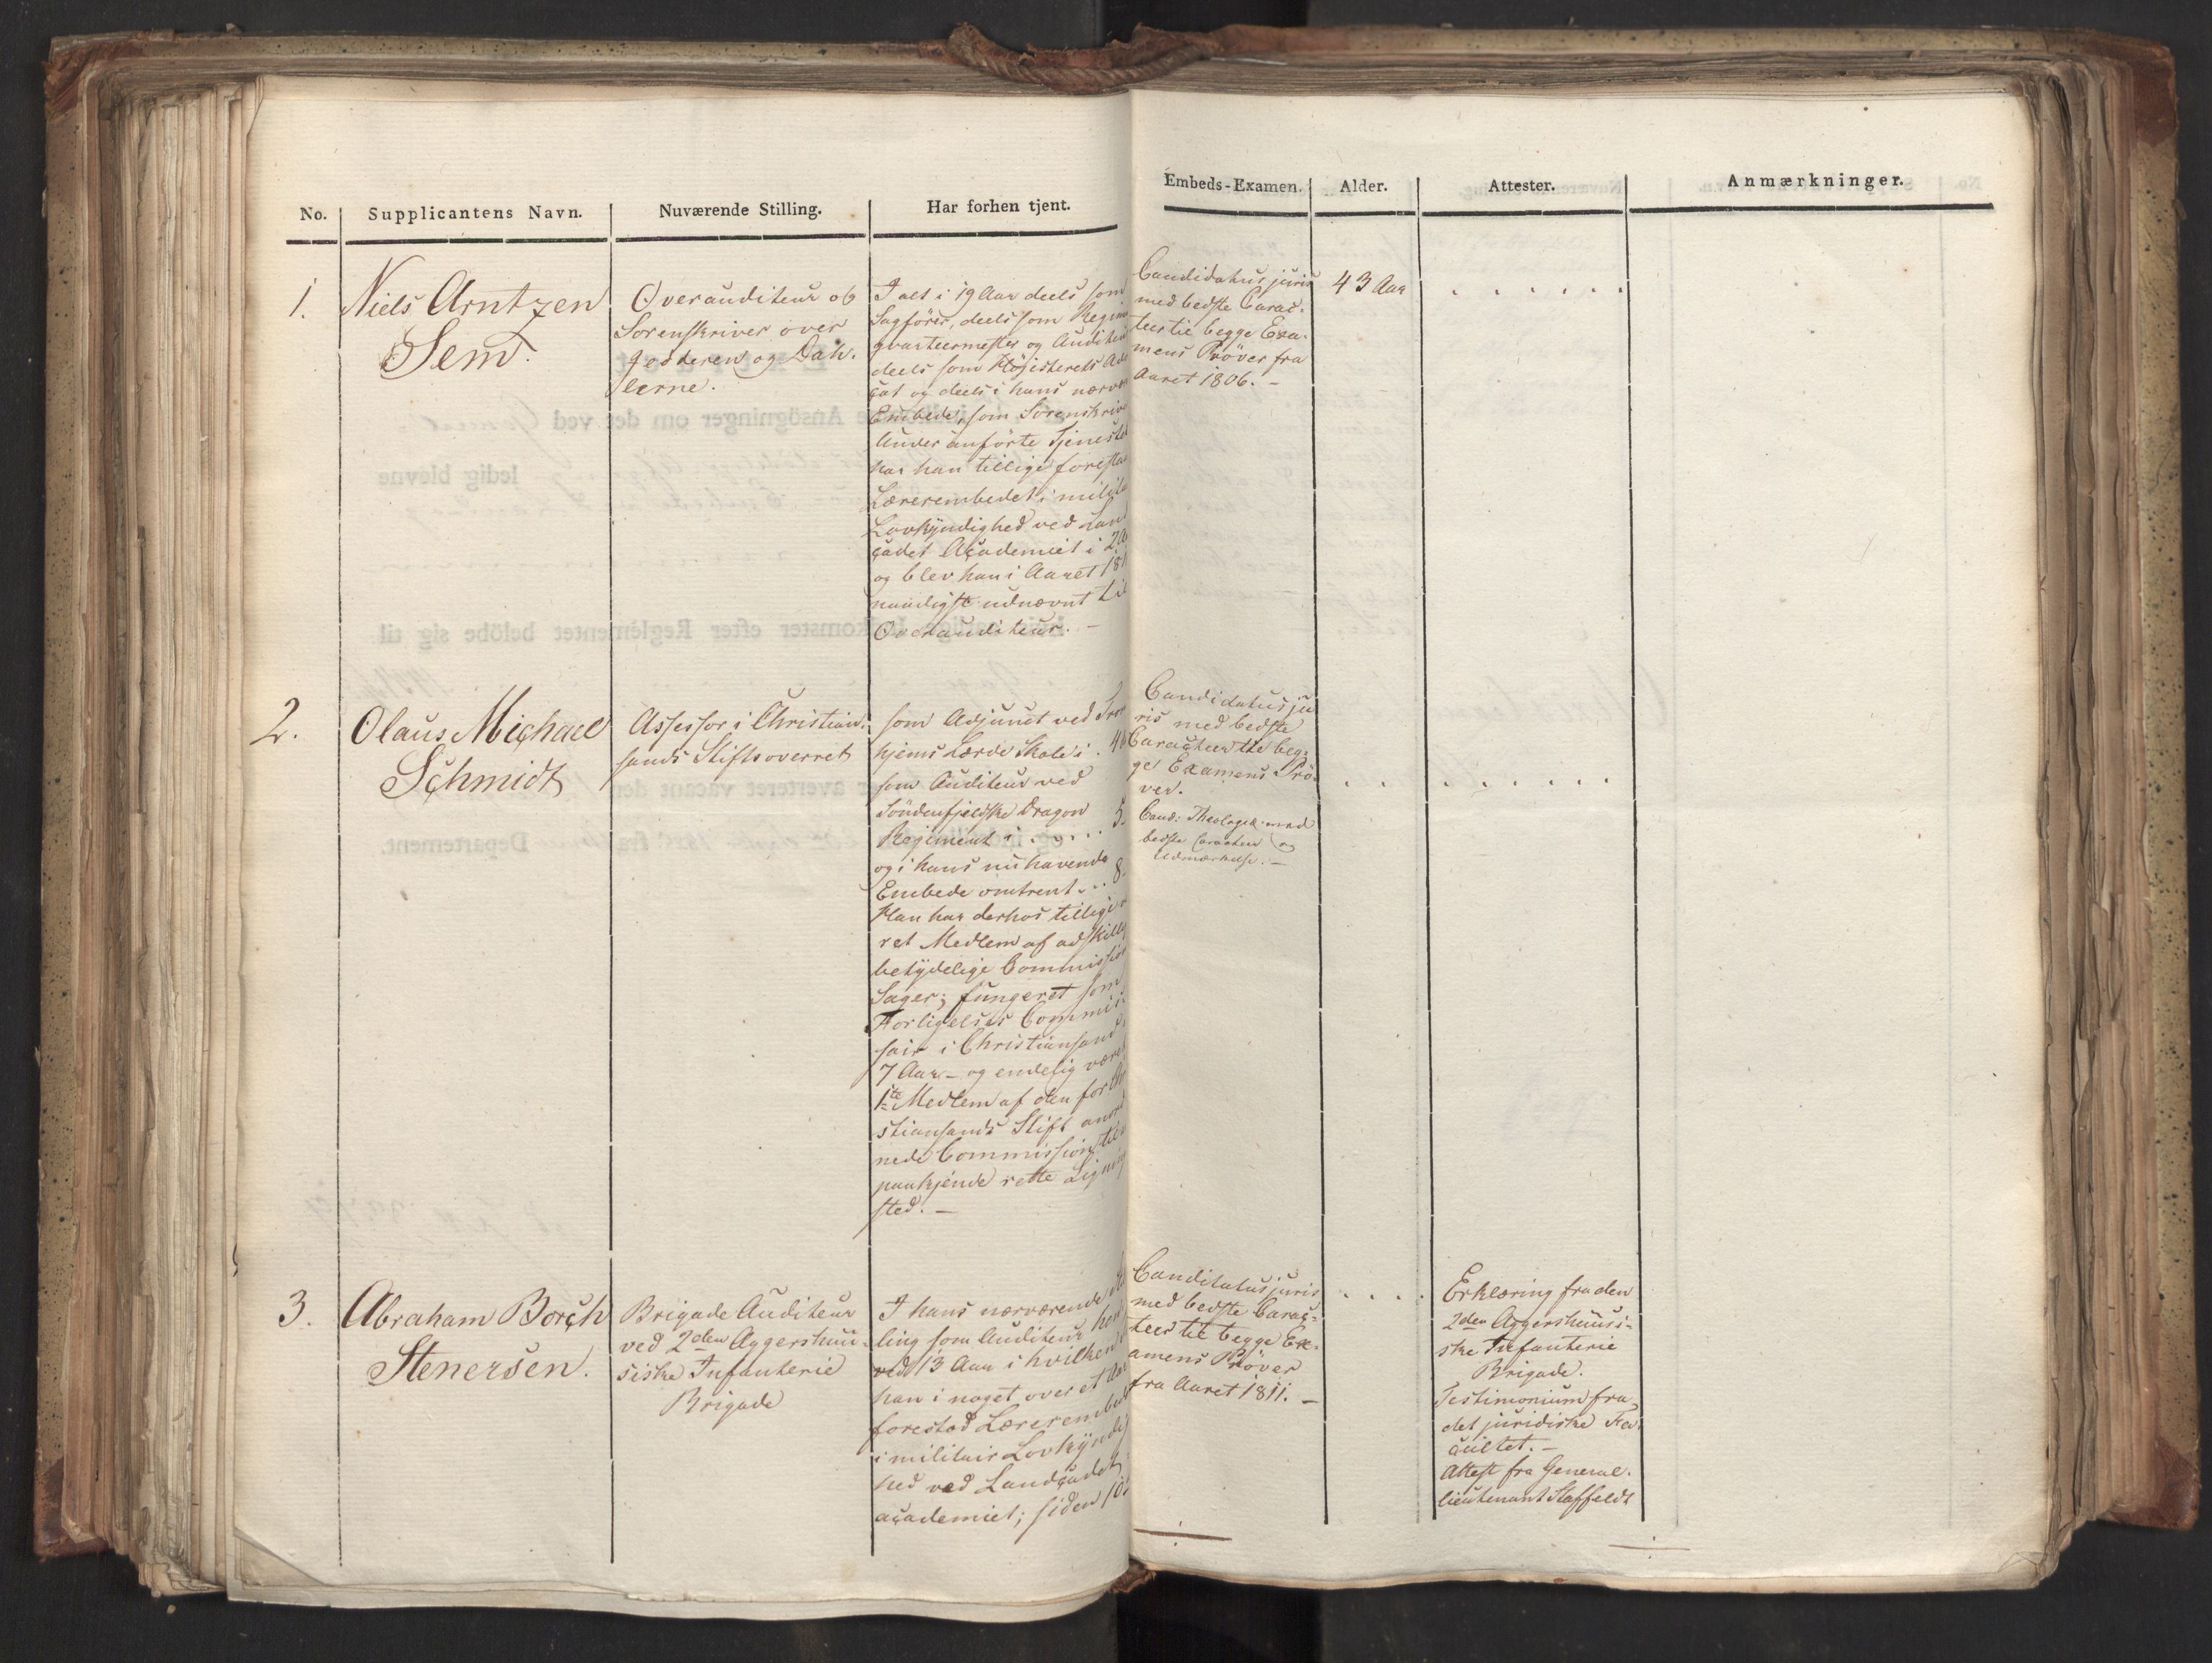 No. Supplicantens Navn. Nuværende Stilling. Har forhen tjent. Embeds-Examen. Alder. Attester. Anmærkninger.
1.
Niels Arntzen
Sem.
Overauditeur og
Sorenskriver over
Jedderen og Dah-
lerne.
I alt i 19 Aar deels som
Sagfører, deels som Regim
qvarteermester og Auditeur
deels som Høiesterets Adv
cat og deels i hans nærvæ
Embede, som Sorenskriv
Under anførte Tjenestet
har han tillige foresta
Lærerembedet i milita
Lovkyndighed ved Land
cadet Academiet i 2 A
og blev han i Aaret 181
naadigst udnævnt til
Overauditeur. –
Candidatus juris
med bedste Carac-
teer til begge Exa-
mens Prøver fra
Aaret 1806. –
43 Aar
. . . . . .
2.
Olaus Michael
Schmidt
Assessor i Christian-
sands Stiftsoverret
som Adjunct ved Tron
hjems Lærde Skole i . 4
som Auditeur ved
Søndenfjeldske Dragon
Regiment i . . . . . 5.
og i hans nu havende
Embede omtrent . . 8.
Han har derhos tillige v
ret Medlem af adskillig
betydelige Commission
Sager; fungeret som
Forligelses Commis-
sair i Christiansand
7 Aar – og endelig været
1ste Medlem af den for Chri
stiansands Stift anord
nede Commission til
paakjende rette Ligning
sted. –
Candidatus ju
ris med bedste
Caracteer til beg-
ge Examens Prø-
ver.
Cand: Theologiæ med
bedste Caracteer og
Udmærkelse. –
. . . . . . . . .
3.
Abraham Borch
Stenersen.
Brigade Auditeur
ved 2den Aggershuu-
siske Infanterie
Brigade
I hans nærværende Stil
ling som Auditeur hen
ved 13 Aar i hvilken
han i noget over et Aar
forestod Lærerembed
i militair Lovkyndig
hed ved Landcadet
academiet; siden 10
Canditatus juris
med bedste Carac-
teer til begge Ex-
amens Prøver
fra Aaret 1811. –
. . . .
Erklæring fra den
2den Aggershuusi-
ske Infanterie
Brigade.
Testimonium fra
det juridiske Fa-
cultet. –
Attest fra General-
lieutenant Staffeldt